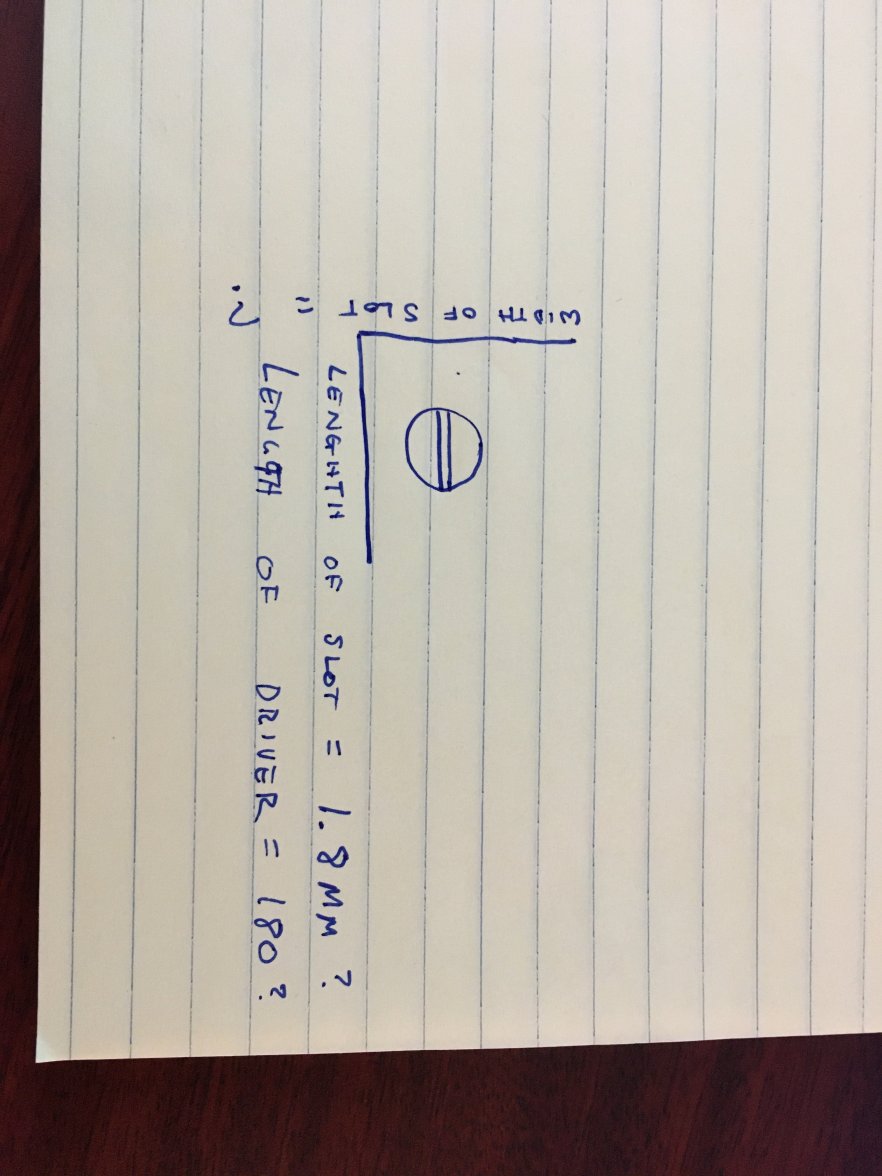 WIDTH OF SLOT = ?
LENGHTH OF SLOT = 1.8MM?
LENGTH OF DRIVER = 180?